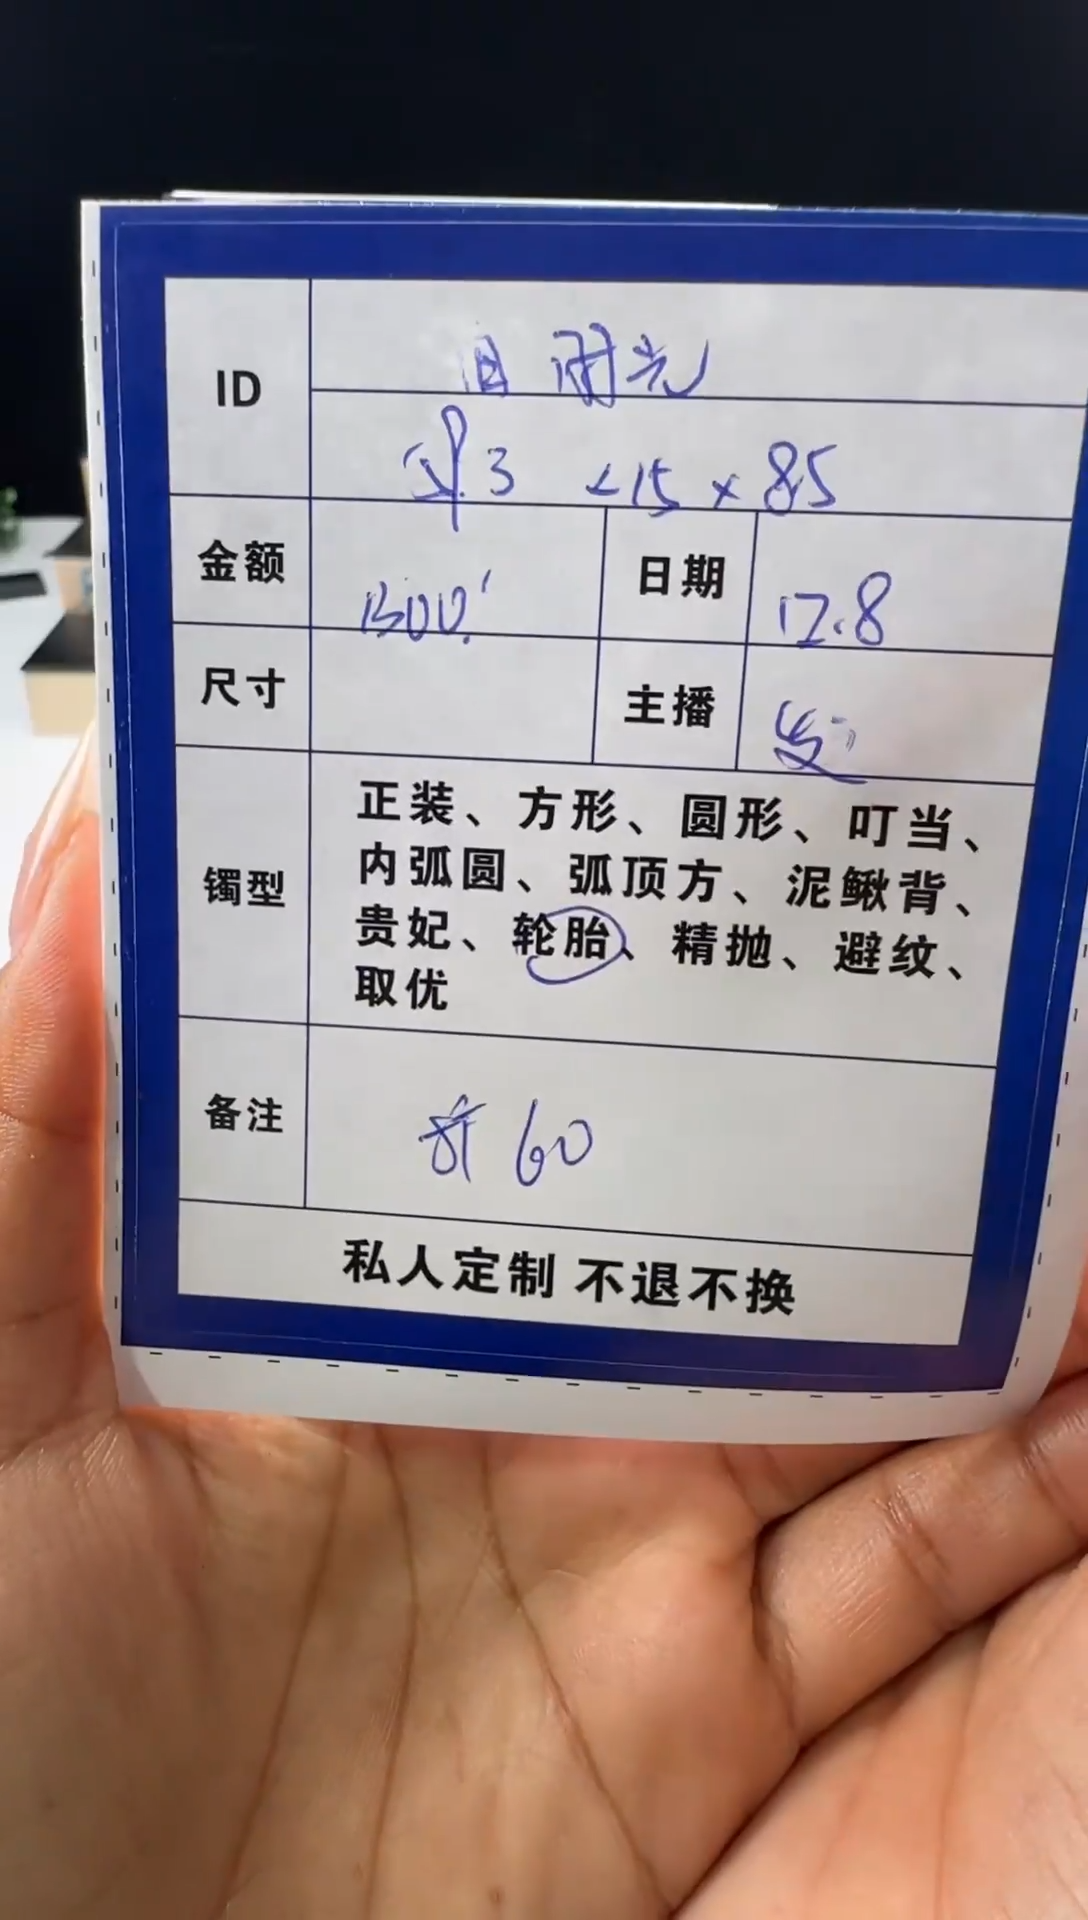 ID
旧时光
3 × 15 × 85
金额
1300
日期
12.8
尺寸
主播
发
镯型
正装、方形、圆形、叮当、
内弧圆、弧顶方、泥鳅背、
贵妃、轮胎、精抛、避纹、
取优
备注
60
私人定制 不退不换